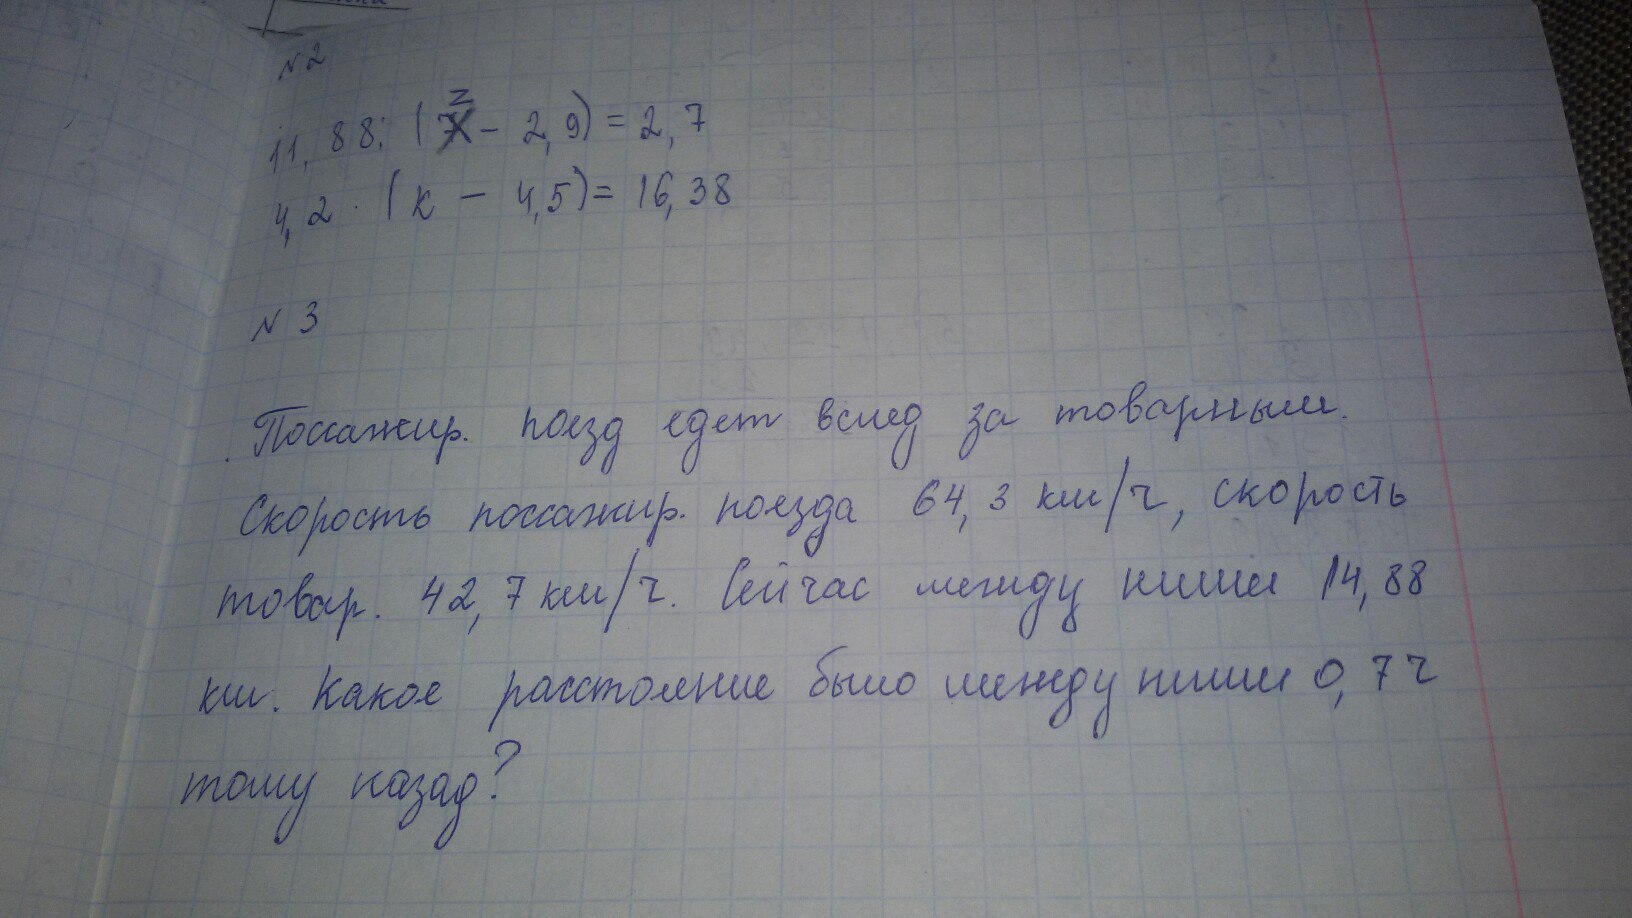 N 2
11,88 : (z - 2,9) = 2,7
4,2 · (к - 4,5) = 16,38
N 3
Поссажир. поезд едет вслед за товарным.
Скорость поссажир. поезда 64,3 км/ч, скорость
товар. 42,7 км/ч. Сейчас между ними 14,88
км. Какое расстояние было между ними 0,7 ч
тому назад?